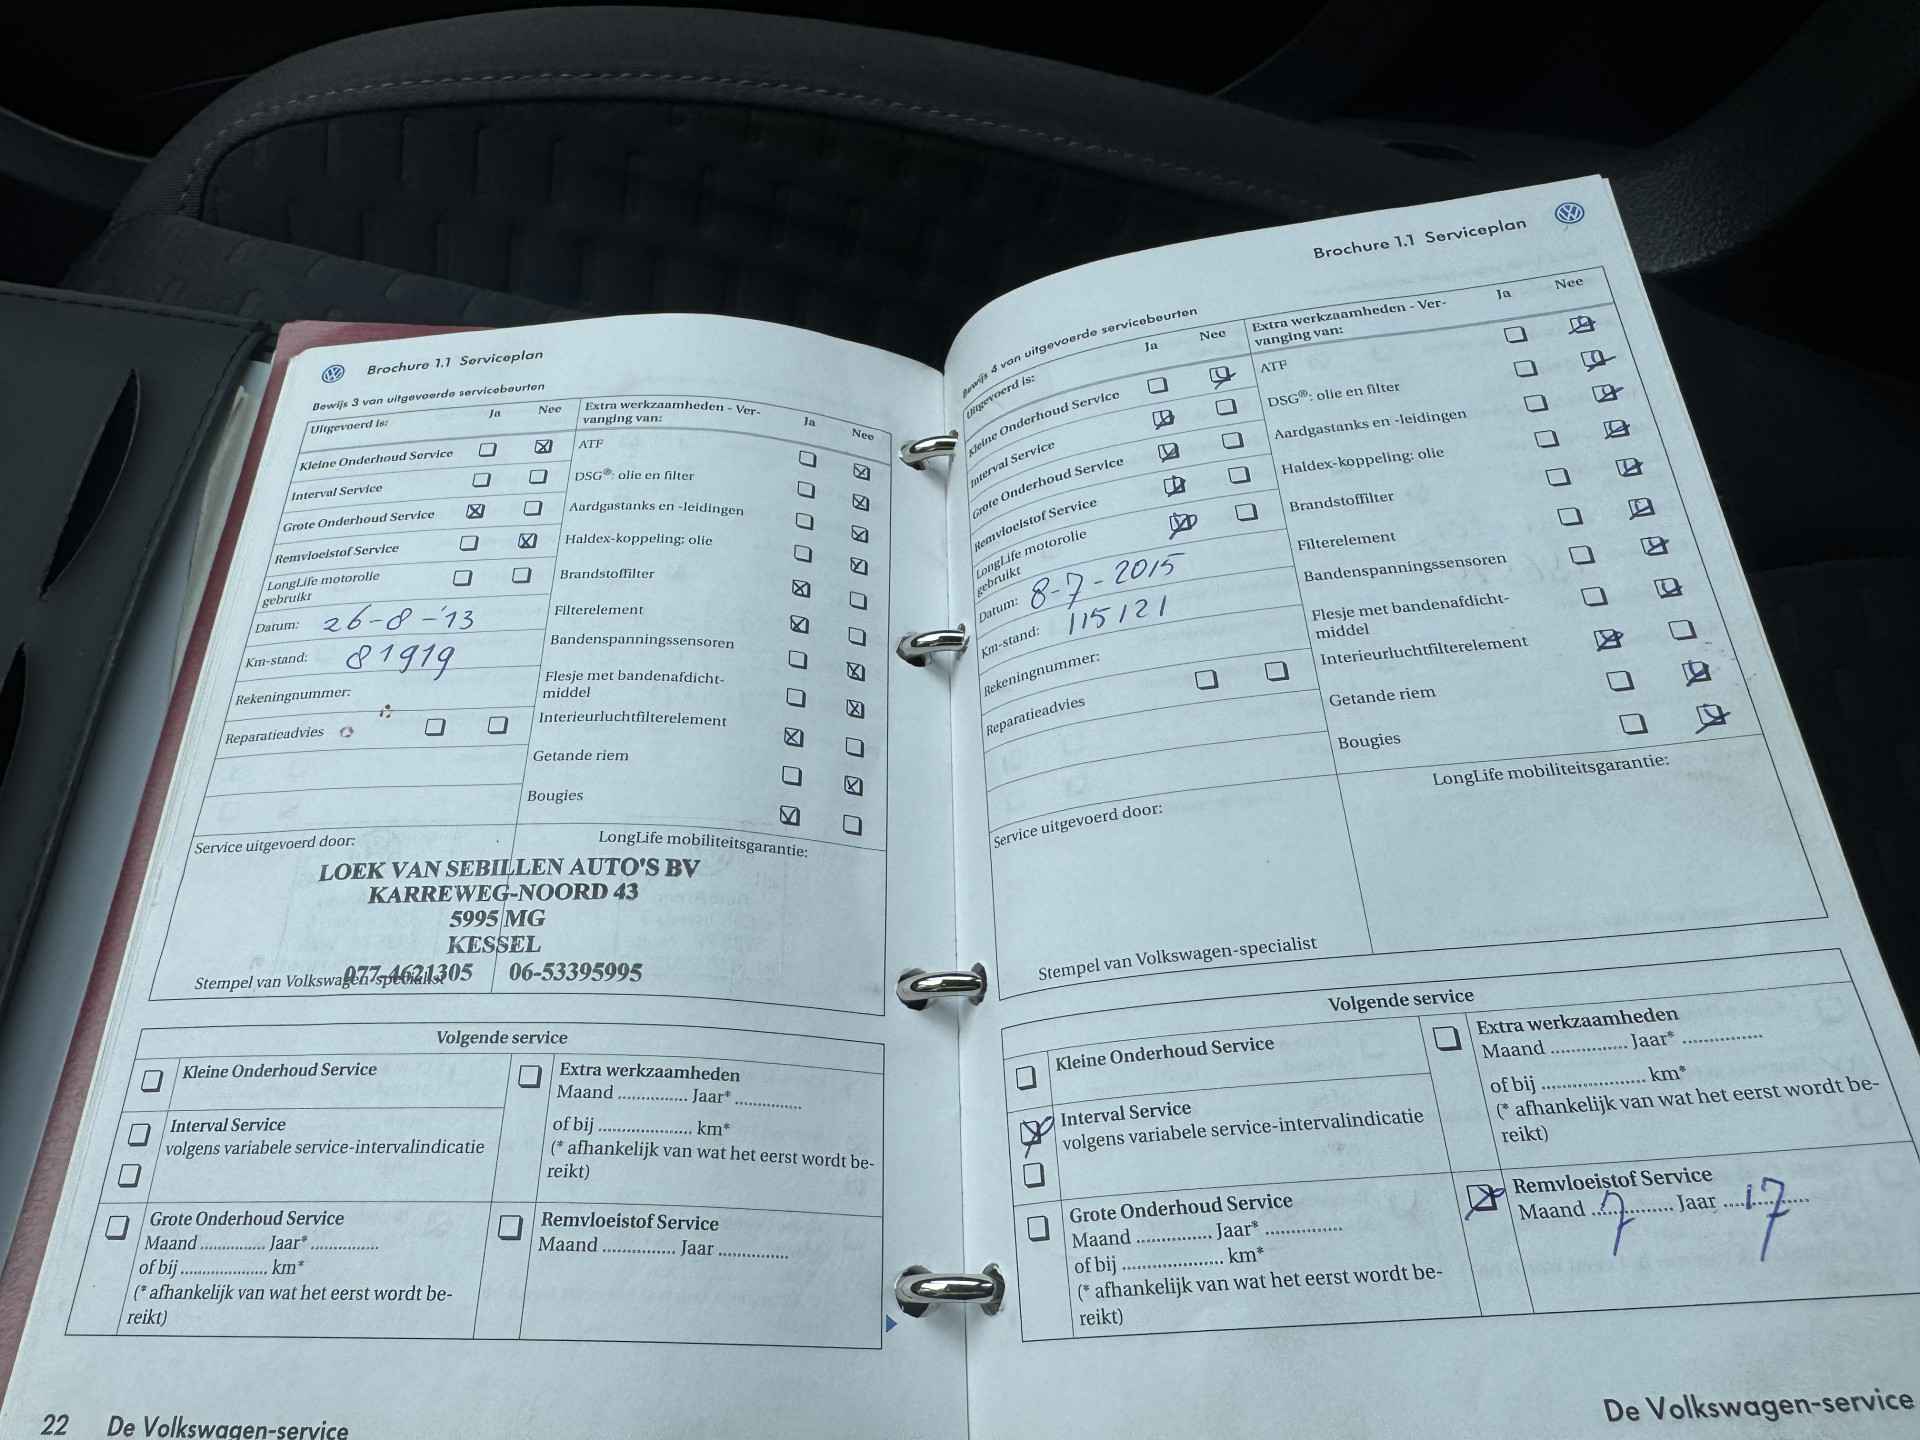 Brochure 1.1 Serviceplan
Bewijs 3 van uitgevoerde servicebeurten
Uitgevoerd is:
Ja Nee
Kleine Onderhoud Service
Interval Service
Grote Onderhoud Service
Remvloeistof Service
LongLife motorolie
gebruikt
Datum: 26-8-'13
Km-stand: 81919
Rekeningnummer:
Reparatieadvies
Extra werkzaamheden - Ver-
vanging van:
Ja Nee
ATF
DSG®: olie en filter
Aardgastanks en -leidingen
Haldex-koppeling: olie
Brandstoffilter
Filterelement
Bandenspanningssensoren
Flesje met bandenafdicht-
middel
Interieurluchtfilterelement
Getande riem
Bougies
Service uitgevoerd door:
LongLife mobiliteitsgarantie:
LOEK VAN SEBILLEN AUTO'S BV
KARREWEG-NOORD 43
5995 MG
KESSEL
077-4621305 06-53395995
Stempel van Volkswagen-specialist
Volgende service
Kleine Onderhoud Service
Interval Service
volgens variabele service-intervalindicatie
Grote Onderhoud Service
Maand ............... Jaar* ...............
of bij .................... km*
(* afhankelijk van wat het eerst wordt be-
reikt)
Extra werkzaamheden
Maand ............... Jaar* ...............
of bij .................... km*
(* afhankelijk van wat het eerst wordt be-
reikt)
Remvloeistof Service
Maand ............... Jaar ...............
22 De Volkswagen-service
Brochure 1.1 Serviceplan
Bewijs 4 van uitgevoerde servicebeurten
Uitgevoerd is:
Ja Nee
Kleine Onderhoud Service
Interval Service
Grote Onderhoud Service
Remvloeistof Service
LongLife motorolie
gebruikt
Datum: 8-7-2015
Km-stand: 115121
Rekeningnummer:
Reparatieadvies
Extra werkzaamheden - Ver-
vanging van:
Ja Nee
ATF
DSG®: olie en filter
Aardgastanks en -leidingen
Haldex-koppeling: olie
Brandstoffilter
Filterelement
Bandenspanningssensoren
Flesje met bandenafdicht-
middel
Interieurluchtfilterelement
Getande riem
Bougies
Service uitgevoerd door:
LongLife mobiliteitsgarantie:
Stempel van Volkswagen-specialist
Volgende service
Kleine Onderhoud Service
Interval Service
volgens variabele service-intervalindicatie
Grote Onderhoud Service
Maand ............... Jaar* ...............
of bij .................... km*
(* afhankelijk van wat het eerst wordt be-
reikt)
Extra werkzaamheden
Maand ............... Jaar* ...............
of bij .................... km*
(* afhankelijk van wat het eerst wordt be-
reikt)
Remvloeistof Service
Maand 7 Jaar 17
De Volkswagen-service